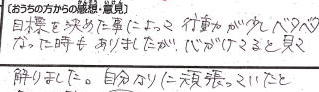 [おうちの方からの感想・意見]
目標を決めた事によって 行動が少しベタベタ
なった時も ありましたが、心がけてると見て
解りました。自分なりに頑張っていたと